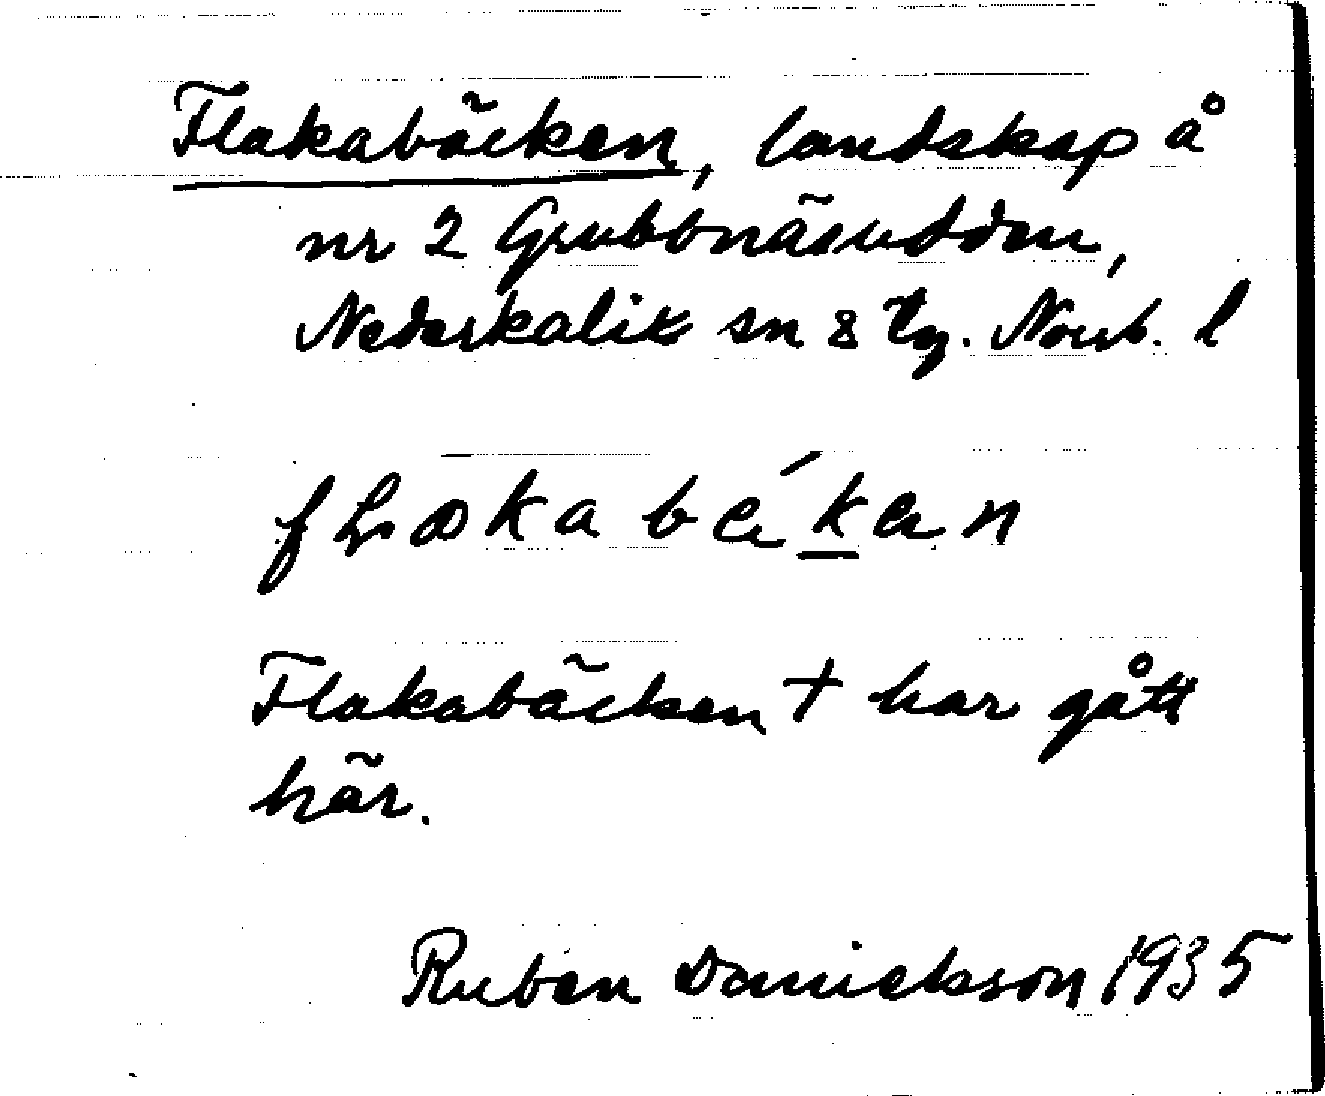 Flakabäcken, landskap å
nr 2 Grubbnäsudden,
Nederkalix sn & tg. Norrb. l
Flakabäcken + har gått
här.
Ruben Danielsson 1935